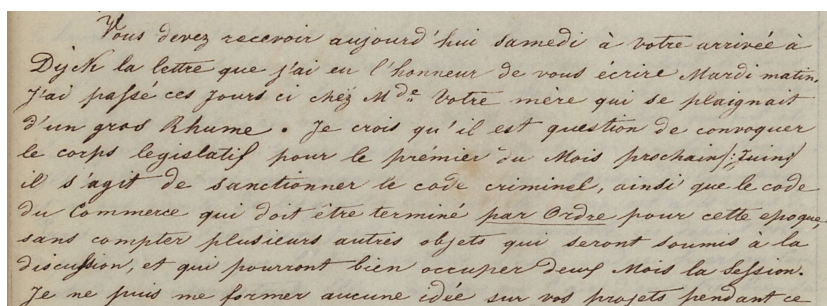 Vous devez recevoir aujourd'hui samedi à votre arrivée à
Dÿck la lettre que j'ai eu l'honneur de vous écrire Mardi matin.
J'ai passé ces Jours ci chéz Mde. Votre mère qui se plaignait
d'un gros Rhume. Je crois qu'il est question de convoquer
le corps legislatif pour le prémier du Mois prochain /: Juin/
il s'agit de sanctionner le code criminel, ainsi que le code
du Commerce qui doit être terminé par Ordre pour cette epoque,
sans compter plusieurs autres objets qui seront soumis à la
discussion, et qui pourront bien occuper deux Mois la Session.
Je ne puis me former aucune idée sur vos projets pendant ce